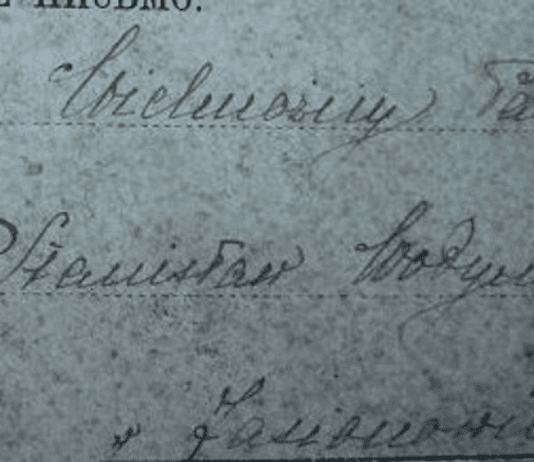 ПИСЬМО.
Wielmożny Pa
Stanisław Wodyń
w Jasionowi